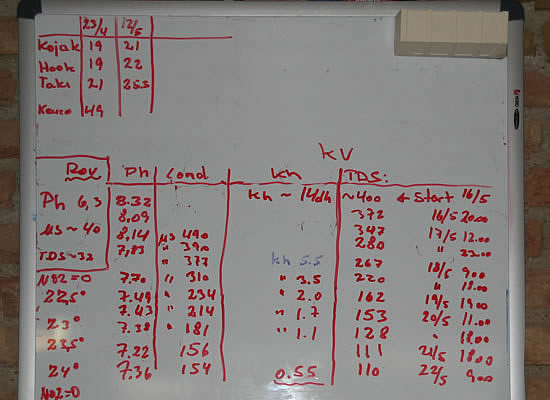 23/4 12/5
Kojak 19 21
Hook 19 22
Taki 21 25.5
49
KV
Rov Ph Cond kh TDS:
Ph 6,3 8.32 kh ~ 14dh ~400 ← Start 16/5
8,09 372 16/5 20.00
µS ~ 40 8,14 µS 490 347 17/5 12.00
7,83 " 390 280 " 23.00
TDS ~ 32 " 377 kh 5.5 267 18/5 9.00
NO2=0 7.70 " 310 " 3.5 220 " 18.00
22,5° 7.49 " 234 " 2.0 162 19/5 19.00
7.43 " 214 " 1.7 153 20/5 11.00
23° 7.38 " 181 " 1.1 128 " 18.00
23,5° 7.22 156 111 21/5 18.00
24° 7.36 154 0.55 110 22/5 9.00
NO2=0